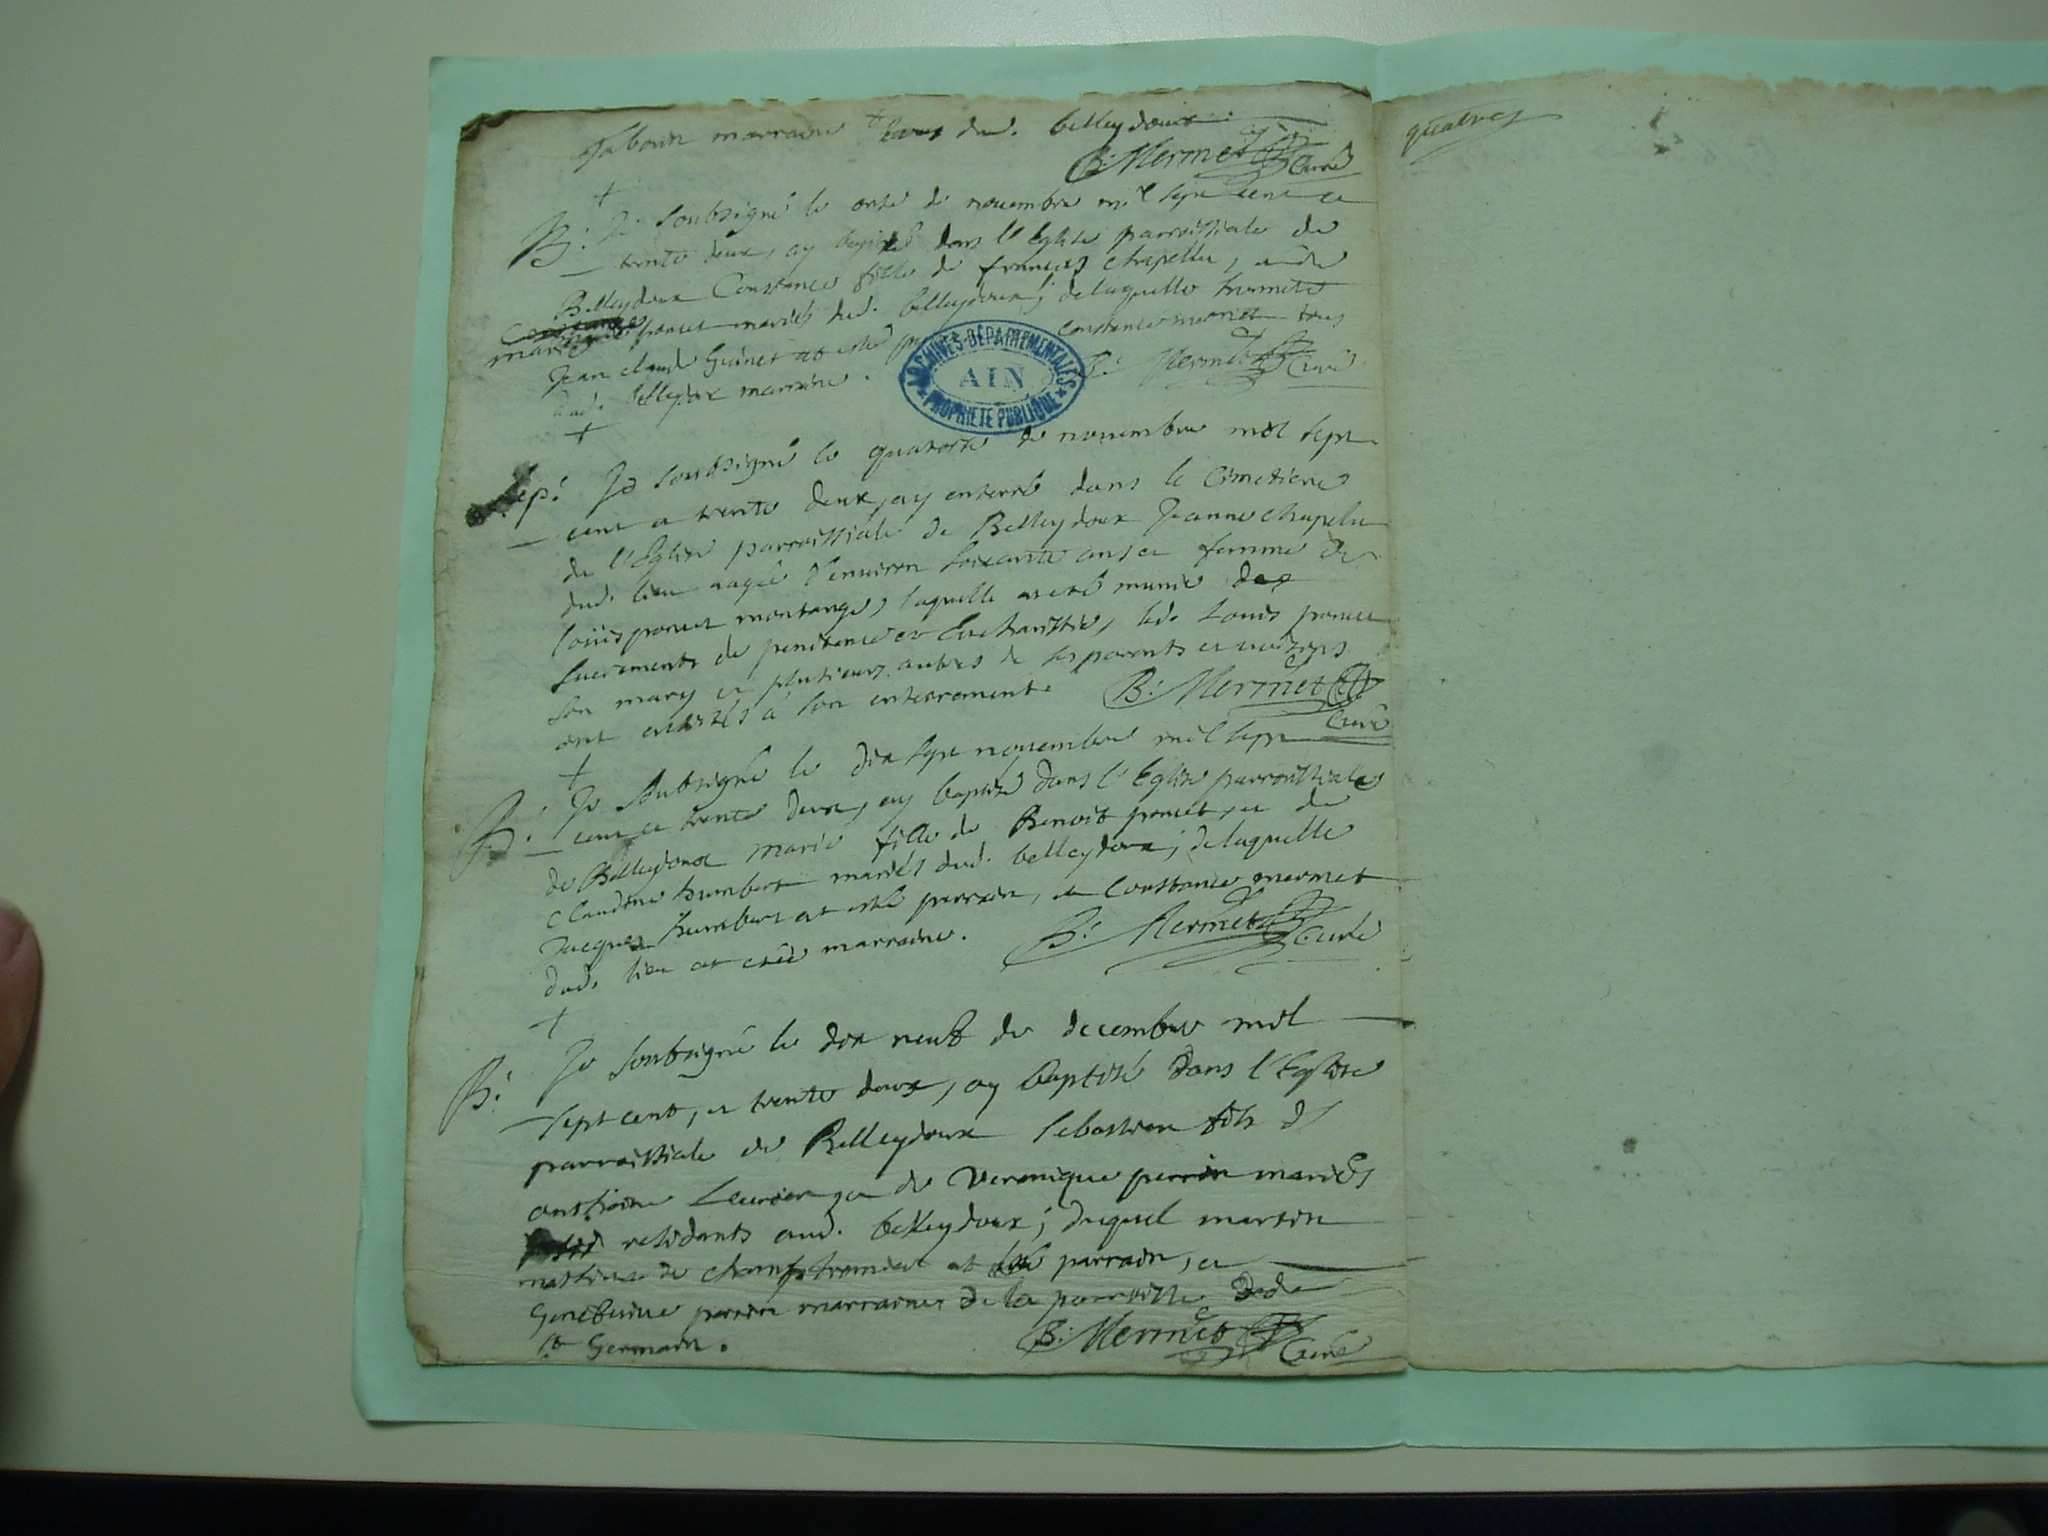 Tabouin marraine tous dud. belleydoux
B: Mermet Curé
quatres
B: Je soubsigné le onse de novembre mil sept cent et
trente deux, ay baptisé dans l'Eglise parroissiale de
Belleydoux Constance fille de françois chapellu, et de
poncet mariés dud. belleydoux; de laquelle
Jean claude Guinet at esté constance mermet tous
dud. belleydoux marraine.
B: Mermet Curé
ARCHIVES DEPARTEMENTALES
AIN
PROPRIETE PUBLIQUE
sep: Je soubsigné le quatorse de novembre mil sept
cent et trente deux, ay enterré dans le Cimetiere
de l'Eglise parroissiale de Belleydoux Jeanne chapelu
dud. lieu aagée d'environ soixante ans et femme de
loüis poncet montange, laquelle at esté munie des
sacrements de penitence et Eucharistie, led. Louis poncet
son mary et plusieurs autres de ses parents et voisins
ont assistés à son enterrement.
B: Mermet
Curé
B: Je soubsigné le dix sept novembre mil sept
cent et trente deux, ay baptisé dans l'Eglise parroissiale
de Belleydoux marie fille de Benoit poncet, et de
Claudine humbert mariés dud. belleydoux; de laquelle
Jacques humbert at esté parrain, et Constance mermet
dud. lieu at estée marraine.
B: Mermet Curé
B: Je soubsigné le dix neuf de decembre mil
sept cent, et trente deux, ay baptisé dans l'Eglise
parroissiale de Belleydoux sebastien fils d'
anthoine et de Veronique perrin mariés
residants aud. belleydoux; duquel martin
mathieu de champfromier at esté parrain, et
Genefvieve perrin marraine de la parroisse de
st Germain.
B: Mermet Curé